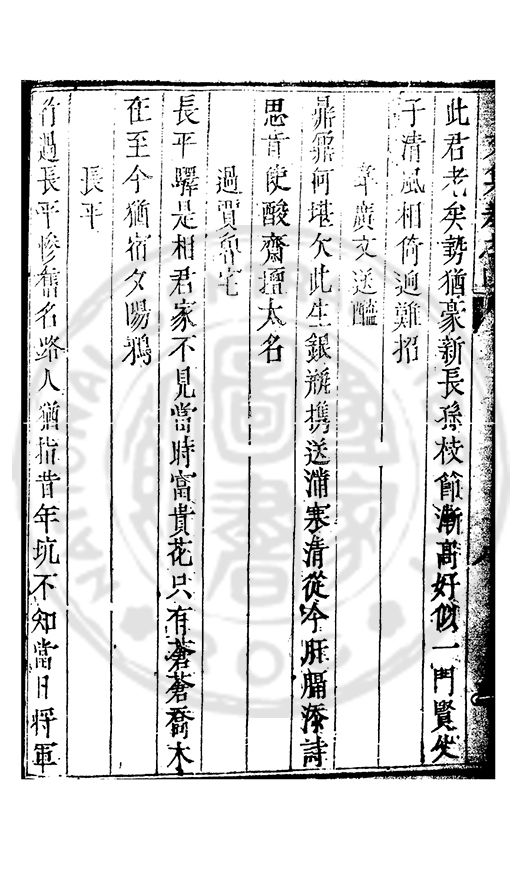 此君老矣勢猶豪新長孫枝節漸高好似一門賢父
子清風相倚迥難招
韋廣文送醯
鼎鼐何堪欠此生銀瓶携送滿寒清從今肝膈添詩
思肯使酸齋擅太名
過賈魯宅
長平驛是相君家不見當時富貴花只有蒼蒼喬木
在至今猶宿夕陽鴉
長平
竹過長平慘舊名路人猶指昔年坑不知當日將軍